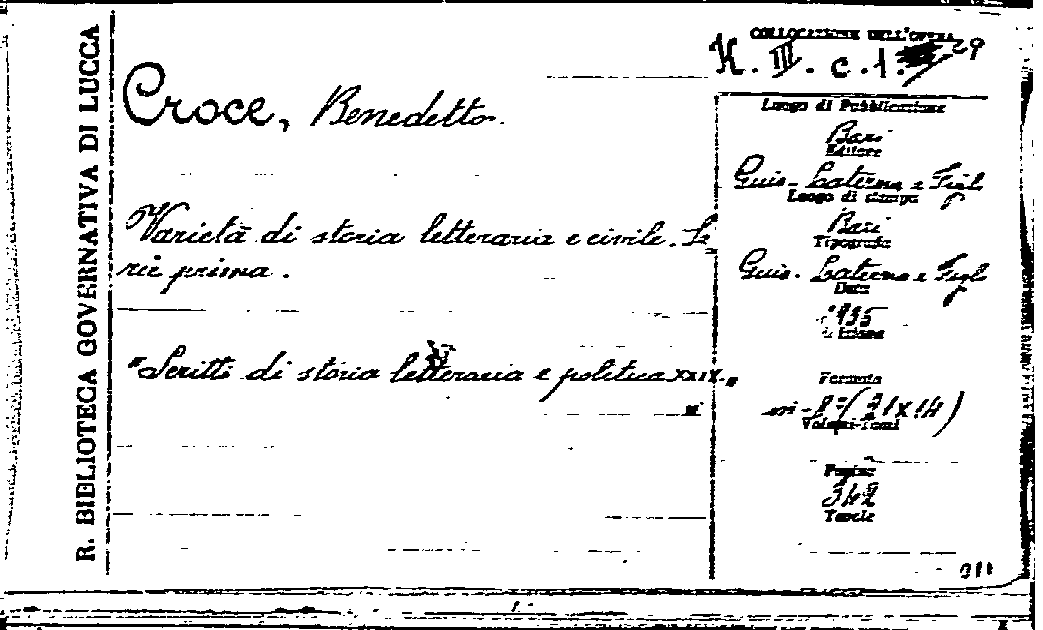 R. BIBLIOTECA GOVERNATIVA DI LUCCA
COLLOCAZIONE DELL'OPERA
K. III. c. 1. 29
Croce, Benedetto.
Varietà di storia letteraria e civile. Se-
rie prima.
"Scritti di storia letteraria e politica XXIX."
Luogo di Pubblicazione
Bari
Editore
Gius. Laterza e Figli
Luogo di stampa
Bari
Tipografia
Gius. Laterza e Figli
Data
1935
Edizione
Formato
in-8° (21x14)
Volumi-Tomi
Pagine
342
Tavole